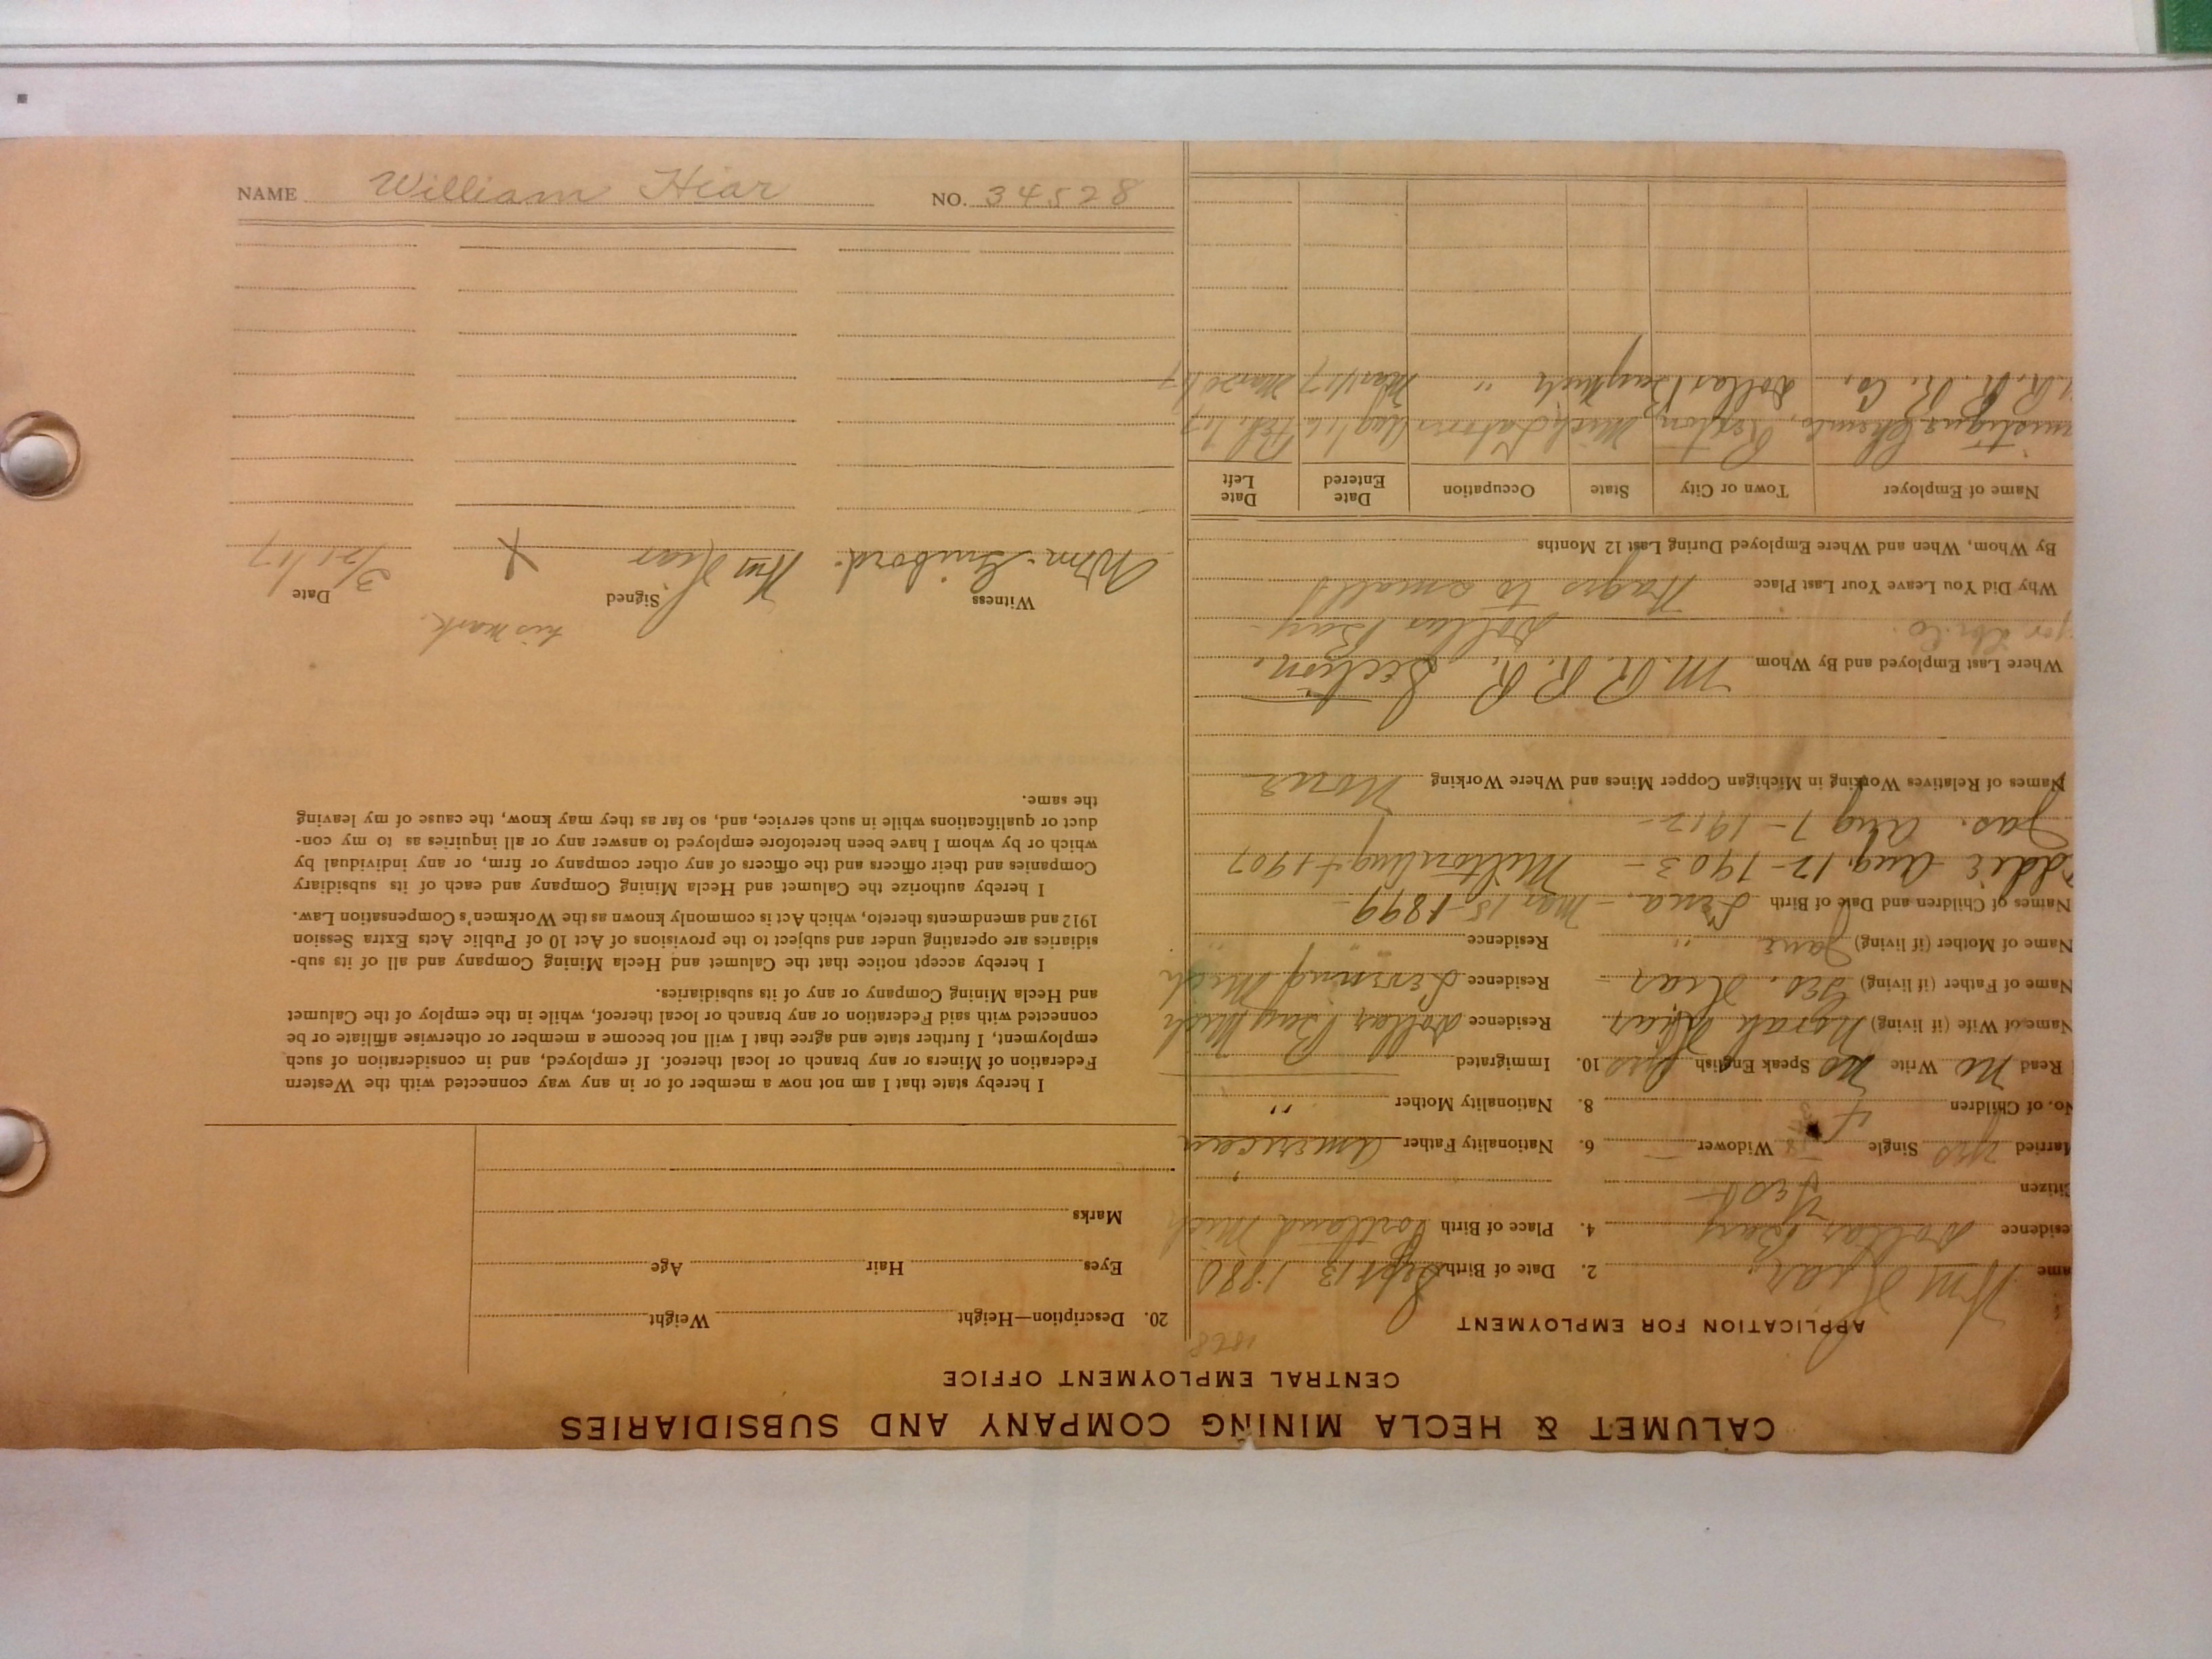 NAME William Hiar NO. 34528
CALUMET & HECLA MINING COMPANY AND SUBSIDIARIES
CENTRAL EMPLOYMENT OFFICE
APPLICATION FOR EMPLOYMENT 1868
ame Wm Hiar 2. Date of Birth Sept 13 1880
esidence Dollar Bay 4. Place of Birth Portland Mich
itizen
arried yes Single Widower 6. Nationality Father American
No. of Children 4 8. Nationality Mother "
Read No Write No Speak English yes 10. Immigrated
Name of Wife (if living) Norah Hiar Residence Dollar Bay Mich
Name of Father (if living) Geo. Hiar Residence Mich
Name of Mother (if living) Jane " Residence " "
Names of Children and Date of Birth Lena - Mar 15 - 1899 -
ddie Aug. 12 - 1903 - Milton Aug 4 1907
Jas. Aug 7 - 1912 -
Names of Relatives Working in Michigan Copper Mines and Where Working None
Where Last Employed and By Whom M. R. R. R. Section.
Dollar Bay
Why Did You Leave Your Last Place Wages to small
By Whom, When and Where Employed During Last 12 Months
Name of Employer Town or City State Occupation Date Entered Date Left
Chemic. Mich Aug 16 Feb. 17
. R. R. R. Co. Dollar Bay Mich " Mar 1/17 Mar 20/17
20. Description—Height Weight
Eyes Hair Age
Marks
I hereby state that I am not now a member of or in any way connected with the Western
Federation of Miners or any branch or local thereof. If employed, and in consideration of such
employment, I further state and agree that I will not become a member or otherwise affiliate or be
connected with said Federation or any branch or local thereof, while in the employ of the Calumet
and Hecla Mining Company or any of its subsidiaries.
I hereby accept notice that the Calumet and Hecla Mining Company and all of its sub-
sidiaries are operating under and subject to the provisions of Act 10 of Public Acts Extra Session
1912 and amendments thereto, which Act is commonly known as the Workmen's Compensation Law.
I hereby authorize the Calumet and Hecla Mining Company and each of its subsidiary
Companies and their officers and the officers of any other company or firm, or any individual by
which or by whom I have been heretofore employed to answer any or all inquiries as to my con-
duct or qualifications while in such service, and, so far as they may know, the cause of my leaving
the same.
his mark.
Witness Signed Date
Wm. Guibord. Wm Hiar X 3/21/17